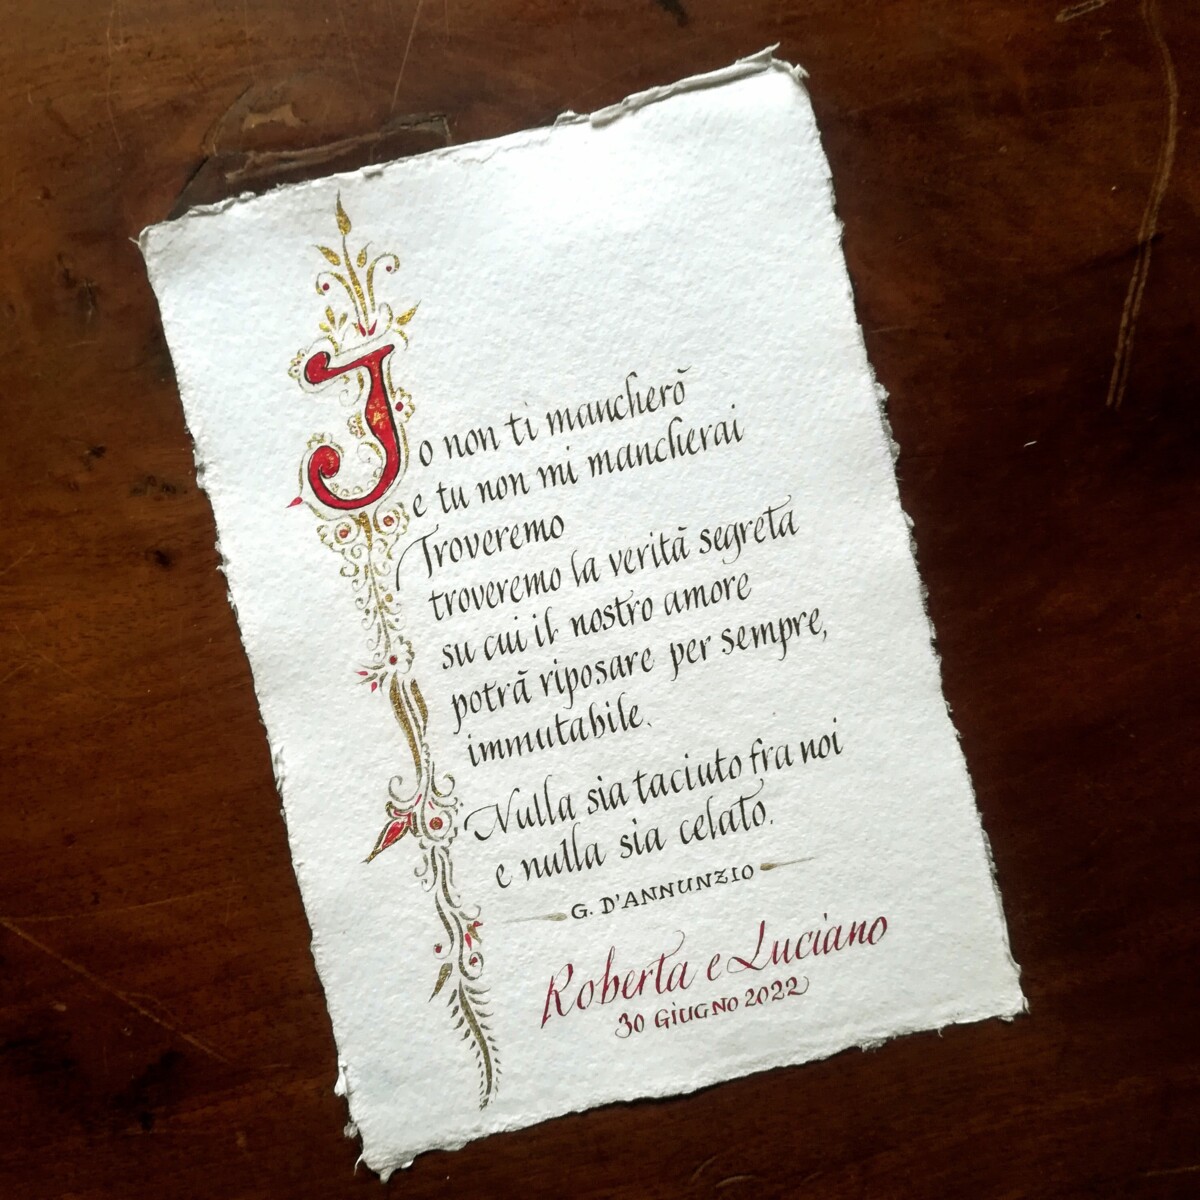 Jo non ti mancherò
e tu non mi mancherai
Troveremo
troveremo la verità segreta
su cui il nostro amore
potrà riposare per sempre,
immutabile.
Nulla sia taciuto fra noi
e nulla sia celato.
G. D'ANNUNZIO
Roberta e Luciano
30 GIUGNO 2022